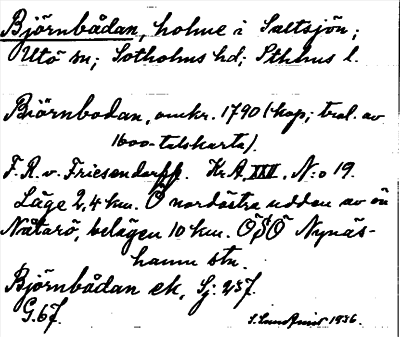 Björnbådan, holme i Saltsjön;
Utö sn; Sotholms hd; Sthlms l.
Björnbodan, omkr. 1790 (kop; trol. av
1600-talskarta).
F. R. v. Friesendorff. Kr. A. XXX, N:o 19.
Läge 2,4 km. Ö nordöstra udden av ön
Nåtarö, belägen 10 km. ÖSÖ Nynäs-
hamn stn.
Björnbådan ek, Sj: 257.
G. 67.
1936.